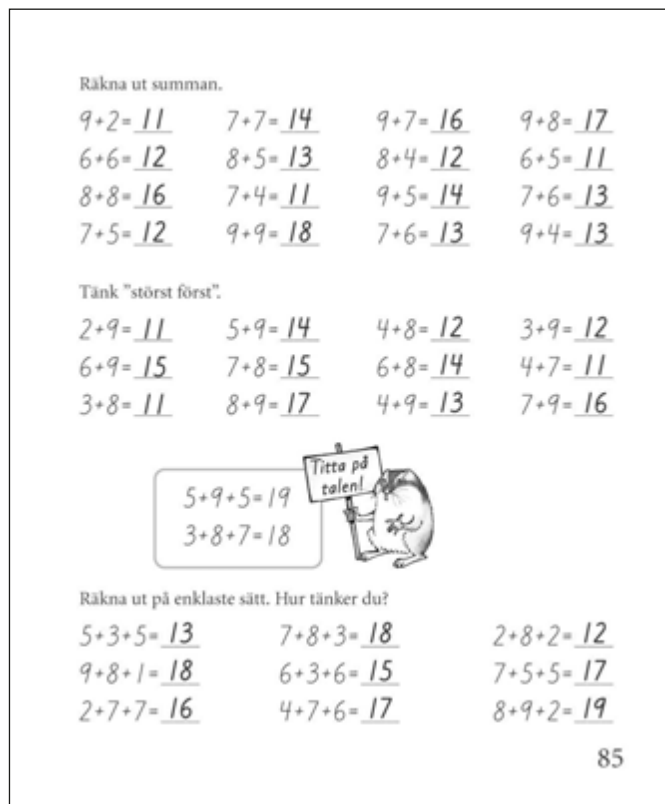 Räkna ut summan.
9+2= 11 7+7= 14 9+7= 16 9+8= 17
6+6= 12 8+5= 13 8+4= 12 6+5= 11
8+8= 16 7+4= 11 9+5= 14 7+6= 13
7+5= 12 9+9= 18 7+6= 13 9+4= 13
Tänk ”störst först”.
2+9= 11 5+9= 14 4+8= 12 3+9= 12
6+9= 15 7+8= 15 6+8= 14 4+7= 11
3+8= 11 8+9= 17 4+9= 13 7+9= 16
Titta på
talen!
5+9+5=19
3+8+7=18
Räkna ut på enklaste sätt. Hur tänker du?
5+3+5= 13 7+8+3= 18 2+8+2= 12
9+8+1= 18 6+3+6= 15 7+5+5= 17
2+7+7= 16 4+7+6= 17 8+9+2= 19
85